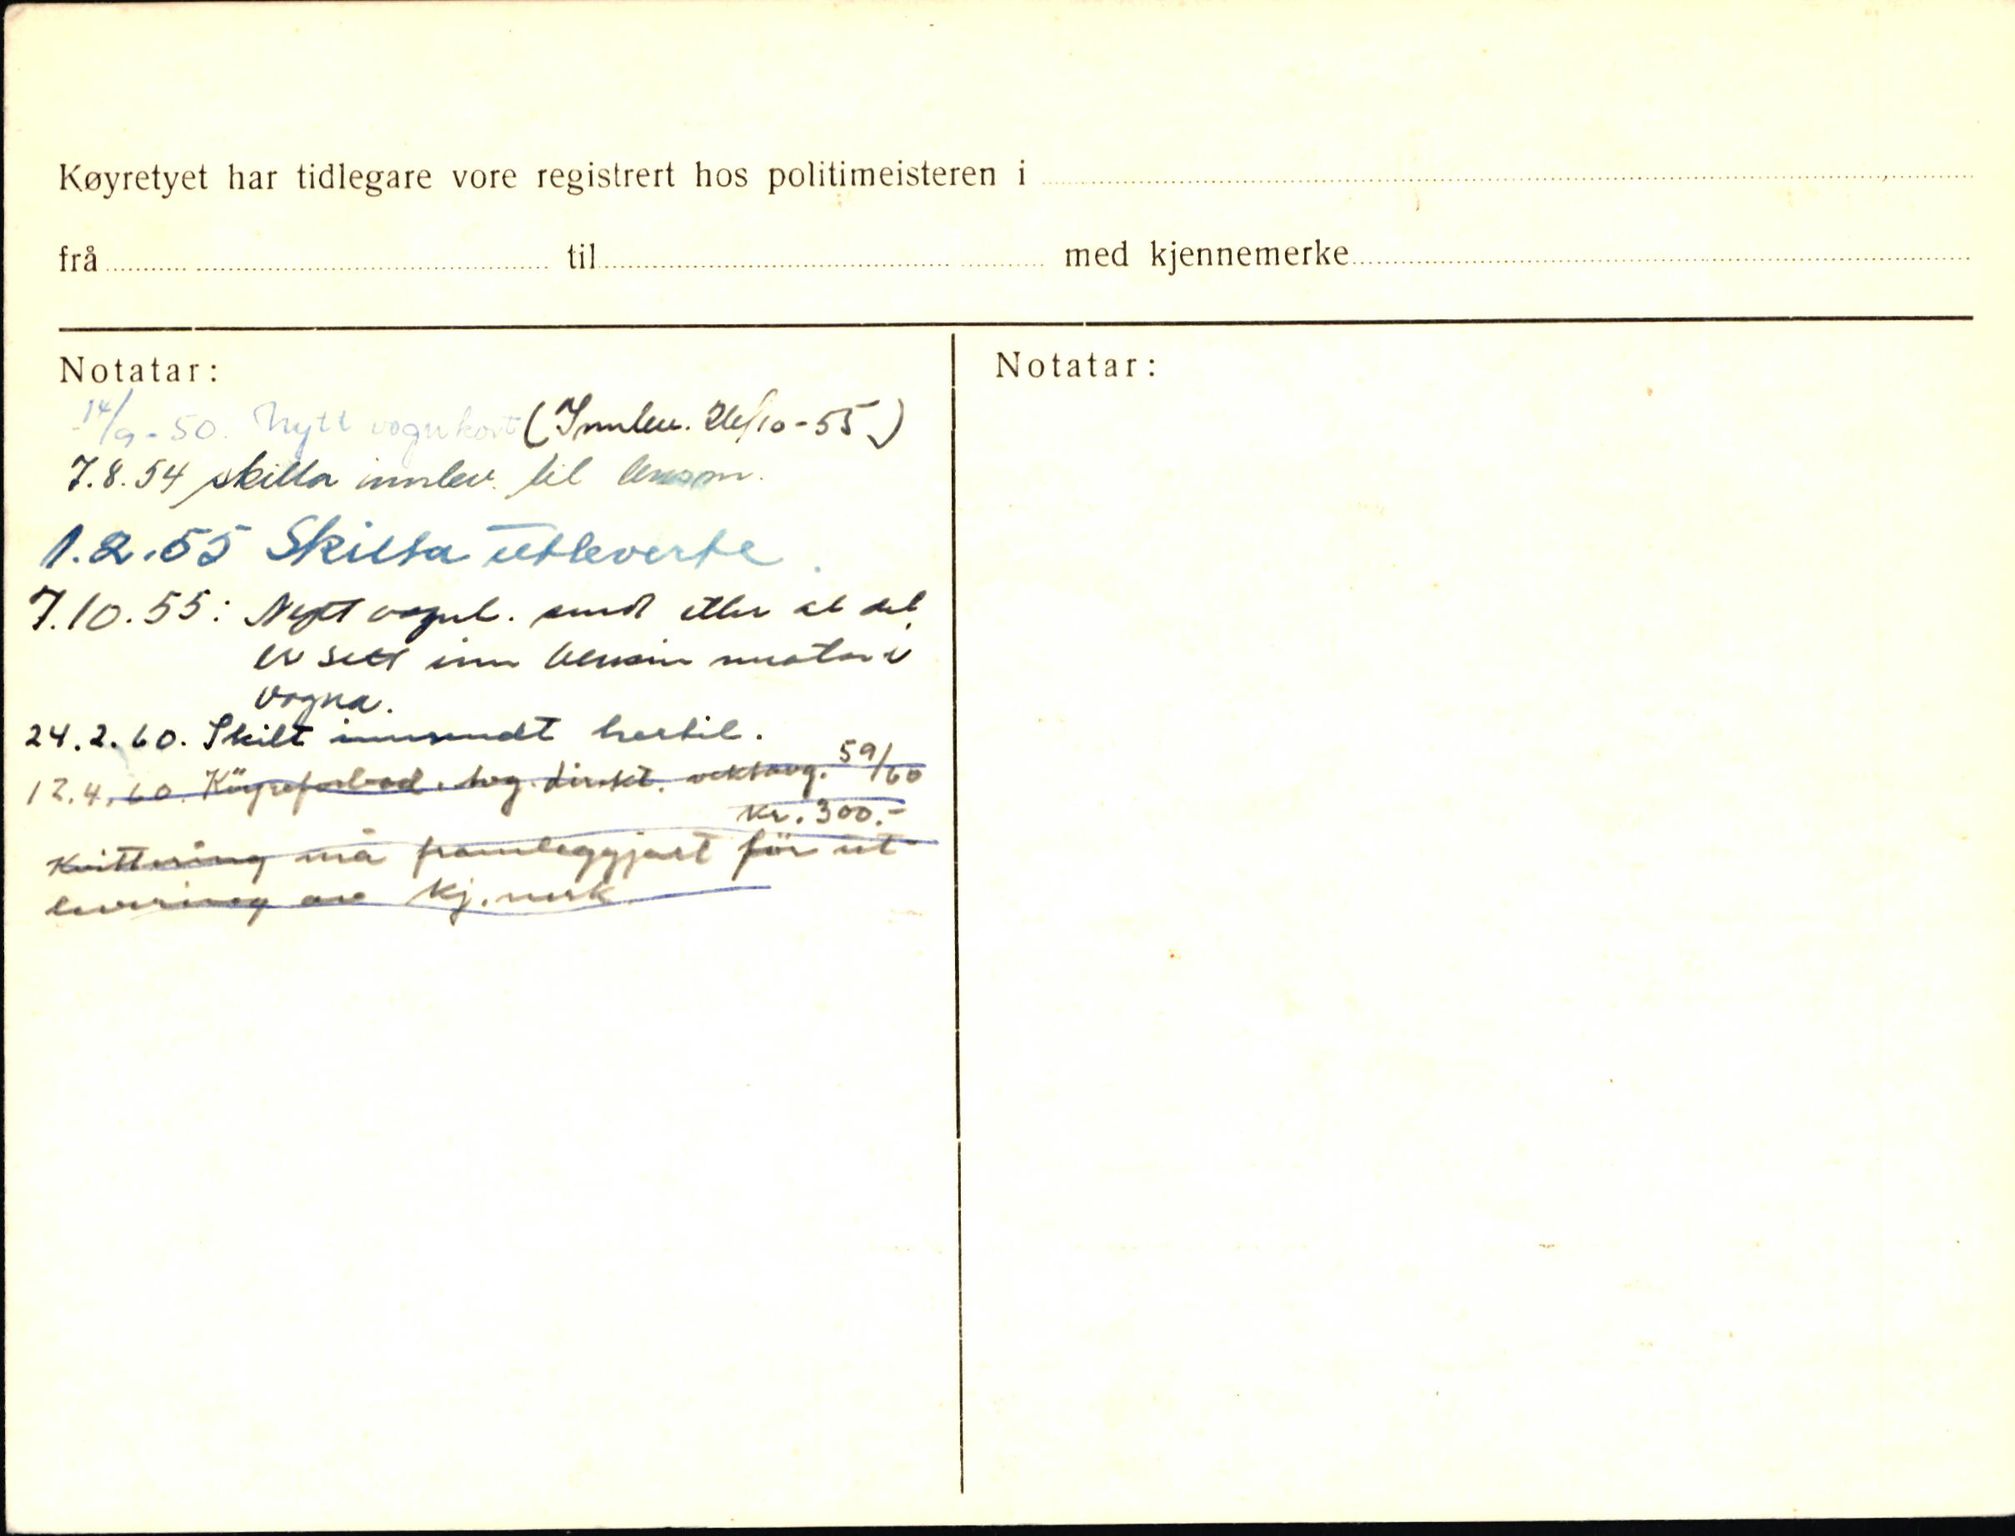 Køyretyet har tidlegare vore registrert hos politimeisteren i
frå til med kjennemerke
Notatar:
14/9-50. Nytt vognkort (Innlev. 26/10-55)
7.8.54 skilta innlev. til lensm.
1.2.55 Skilta utleverte.
7.10.55: Nytt vognk. sendt etter at det
er sett inn bensin motor i
vogna.
24.2.60. Skilt innsendt hertil.
12.4.60. Köyreforbod. vektavg. 59/60
kr. 300.-
Kvittering må framleggjast för ut
levering av kj.merk
Notatar: